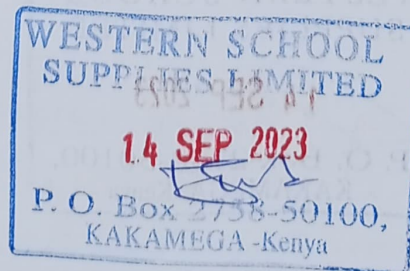 WESTERN SCHOOL
SUPPLIES LIMITED
14 SEP 2023
P. O. Box 2738-50100,
KAKAMEGA -Kenya